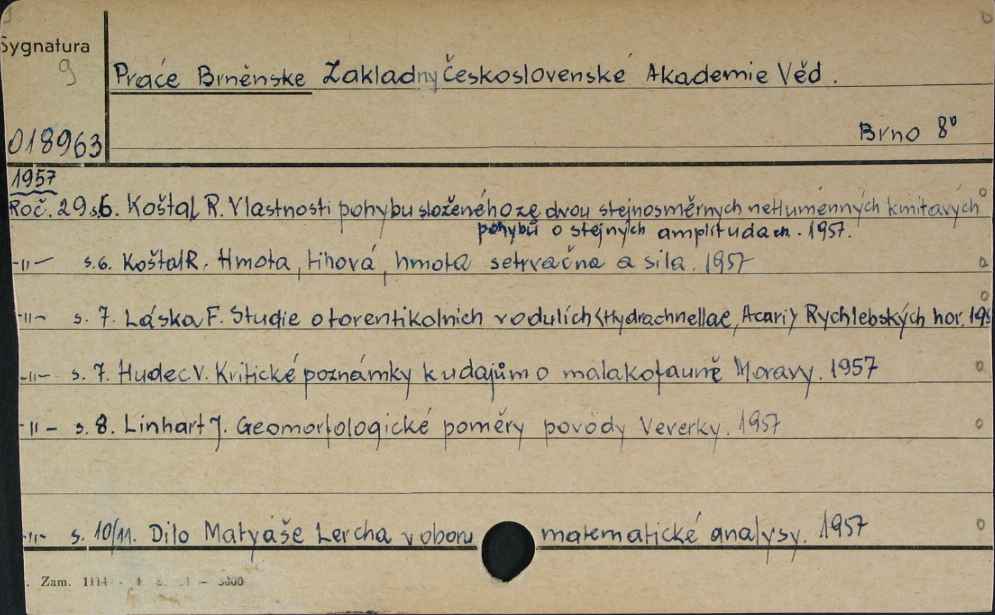 Sygnatura
9
Praće Brněnske Zakladny Československé Akademie Věd.
018963
Brno 8°
1957
Roč. 29 s.6. Koštal R. Vlastnosti pohybu složeného ze dvou stejnosměrných netlumenných kmitavých
pohybů o stejných amplitudach. 1957.
-"- s.6. Koštal R. Hmota, tihová, hmota setrvačna a sila. 1957
-"- s. 7. Láska F. Studie o torentikolnich vodulích (Hydrachnellae, Acari) Rychlebských hor. 195
-"- s. 7. Hudec V. Kritické poznámky k udajům o malakofauně Moravy. 1957
-"- s. 8. Linhart J. Geomorfologické poměry povody Veverky. 1957
-"- s. 10/11. Dilo Matyáše Lercha v oboru matematické analysy. 1957
Zam. 1114